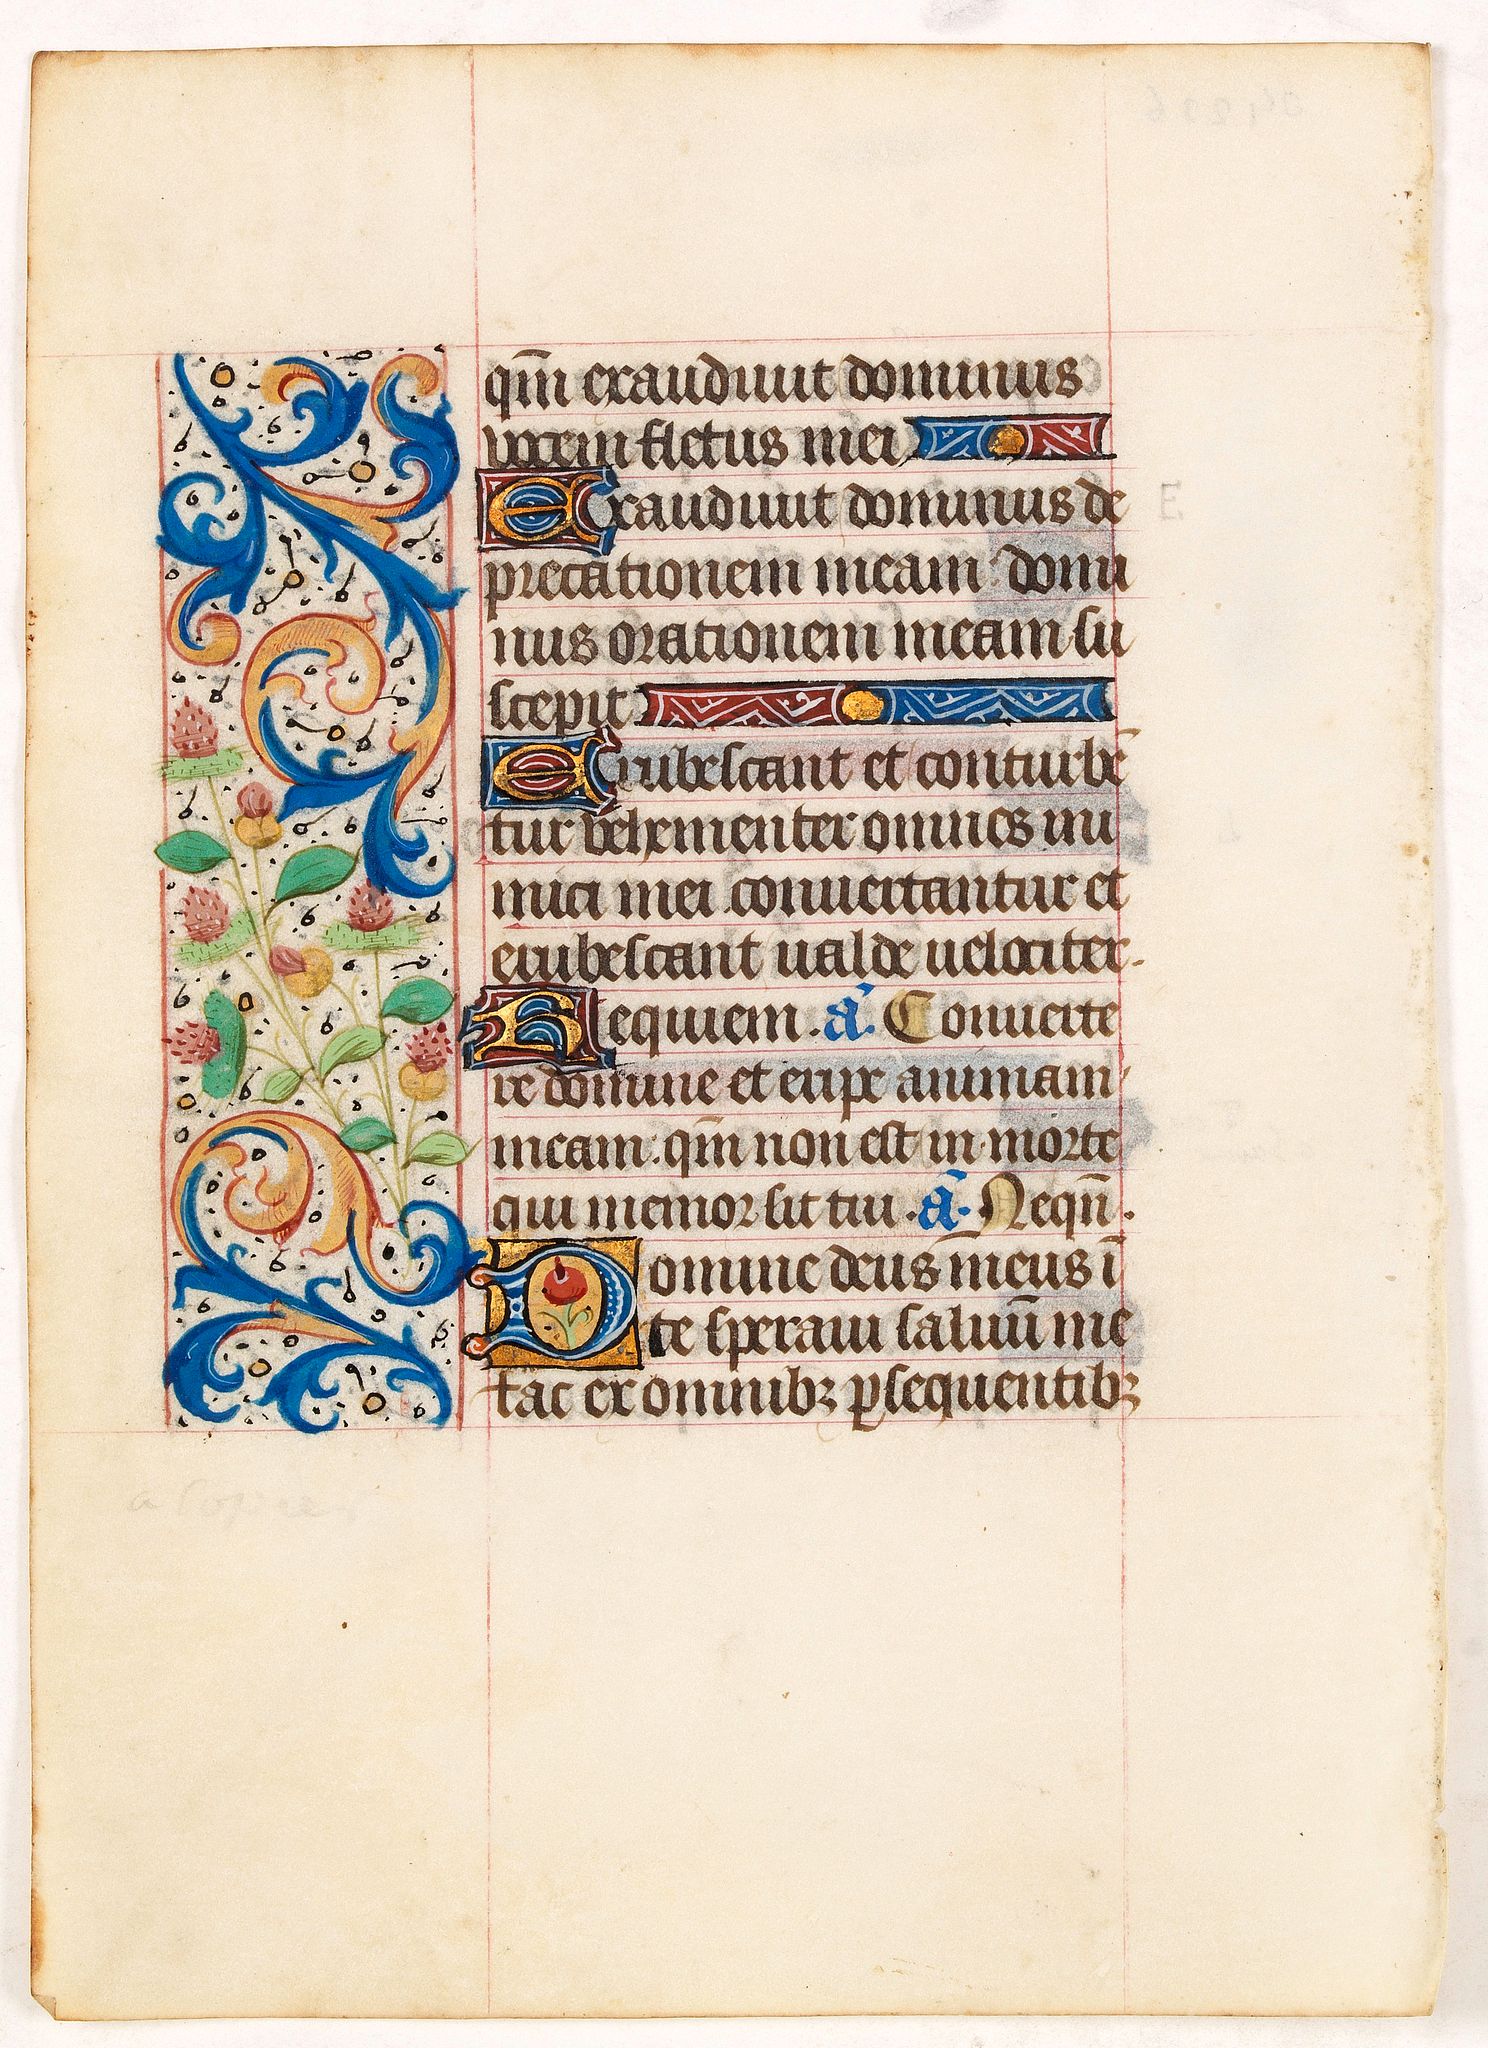 qm̄ exaudiuit dominus
vocem fletus mei
Exaudiuit dominus de
precationem meam: domi
nus orationem meam su
scepit
Erubescant et conturbē
tur vehementer omnes ini
mici mei conuertantur et
erubescant ualde uelociter.
Requiem. ā. Conuerte
re domine et eripe animam
meam: qm̄ non est in morte
qui memor sit tui. ā. Nequn̄.
Domine deus meus ī
te speraui saluū me
fac ex omnibꝫ ꝑsequentibꝫ